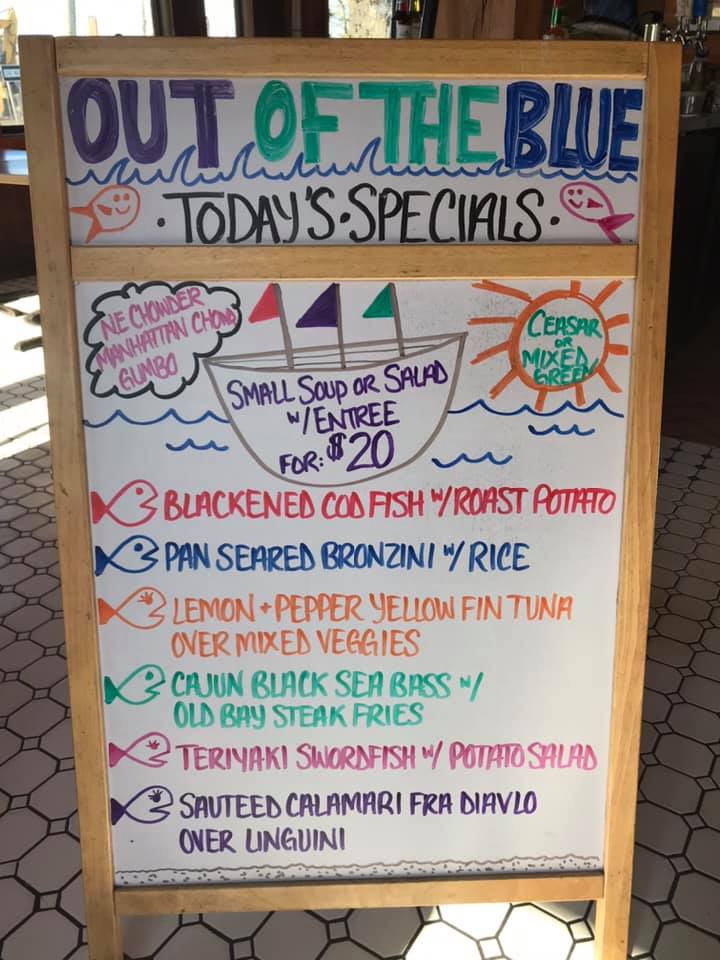 OUT OF THE BLUE
·TODAY'S·SPECIALS·
NE CHOWDER
MANHATTAN CHOWD
GUMBO
SMALL SOUP OR SALAD
W/ENTREE
FOR: $20
CEASAR
OR
MIXED
GREEN
BLACKENED COD FISH W/ROAST POTATO
PAN SEARED BRONZINI W/ RICE
LEMON + PEPPER YELLOW FIN TUNA
OVER MIXED VEGGIES
CAJUN BLACK SEA BASS W/
OLD BAY STEAK FRIES
TERIYAKI SWORDFISH W/ POTATO SALAD
SAUTEED CALAMARI FRA DIAVLO
OVER LINGUINI